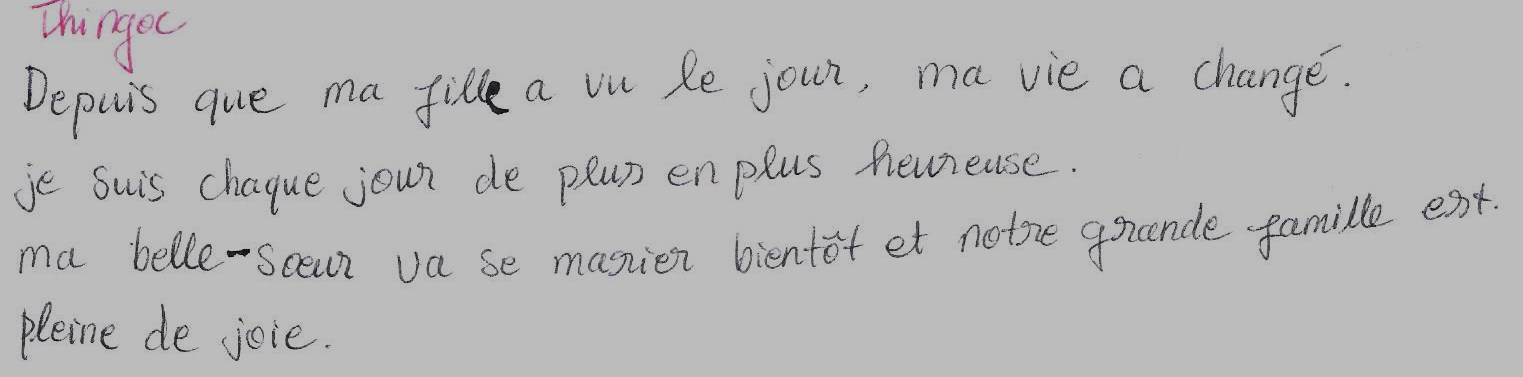 Thingoc
Depuis que ma fille a vu le jour, ma vie a changé.
je suis chaque jour de plus en plus heureuse.
ma belle-sœur va se marier bientôt et notre grande famille est.
pleine de joie.